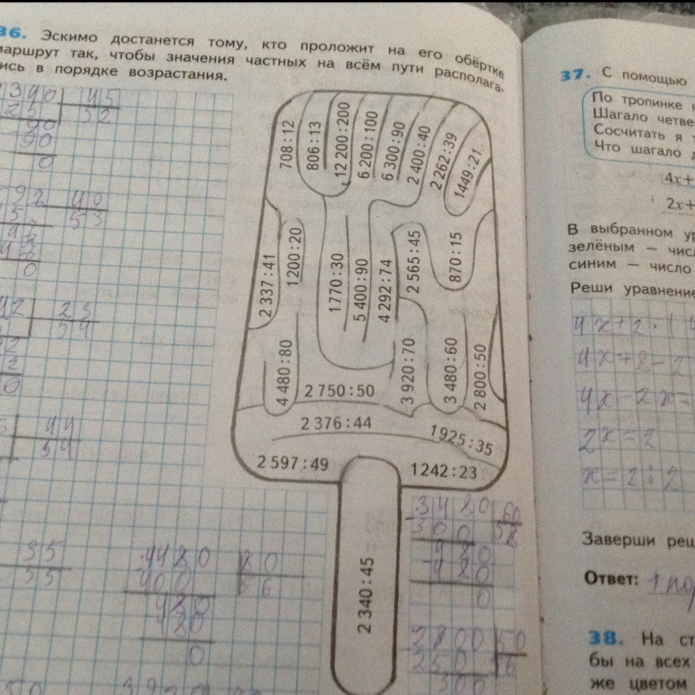 36. Эскимо достанется тому, кто проложит на его обёртке
маршрут так, чтобы значения частных на всём пути располага-
лись в порядке возрастания.
708:12
806:13
12 200:200
6 200:100
6 300:90
2 400:40
2 262:39
1449:21
2 337:41
1200:20
1 770:30
5 400:90
4 292:74
2 565:45
870:15
4 480:80
2 750:50
3 920:70
3 480:60
2 800:50
2 376:44
1 925:35
2 597:49
1242:23
2 340:45
45
52
40
53
23
54
44
54
35
55
4480 80
400 56
480
480
0
3480 60
300 58
480
480
0
2800 50
250 56
300
37. С помощью
По тропинке
Шагало четве
Сосчитать я
Что шагало
4x+
2x+
В выбранном ур
зелёным — чис
синим — число
Реши уравнение
4x+2·
4x+8-2
4x-2x=
2x=2
x=2:2
Заверши реш
Ответ: 1
38. На ст
бы на всех
же цветом